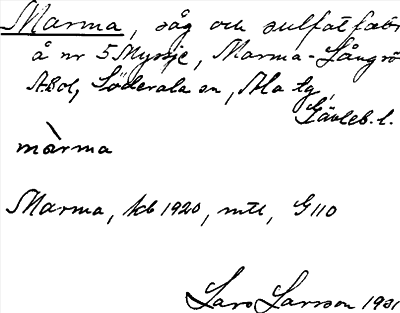 Marma, såg och sulfatfabr
å nr 5 Myssje, Marma-Långrö
ABol, Söderala sn, Ala tg,
Gävleb. l.
màrma
Marma, kb 1920, mtl, G 110
Lars Larsson 1931